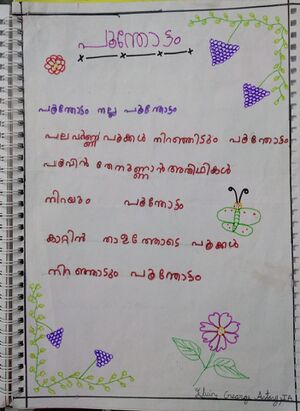 പൂന്തോട്ടം
പൂന്തോട്ടം നല്ല പൂന്തോട്ടം
പല വർണ്ണ പൂക്കൾ നിറഞ്ഞിടും പൂന്തോട്ടം
പൂവിൻ തേനുണ്ണാൻ അതിഥികൾ
നിറയും പൂന്തോട്ടം
കാറ്റിൻ താളത്തോടെ പൂക്കൾ
നിറഞ്ഞാടും പൂന്തോട്ടം
George Antony